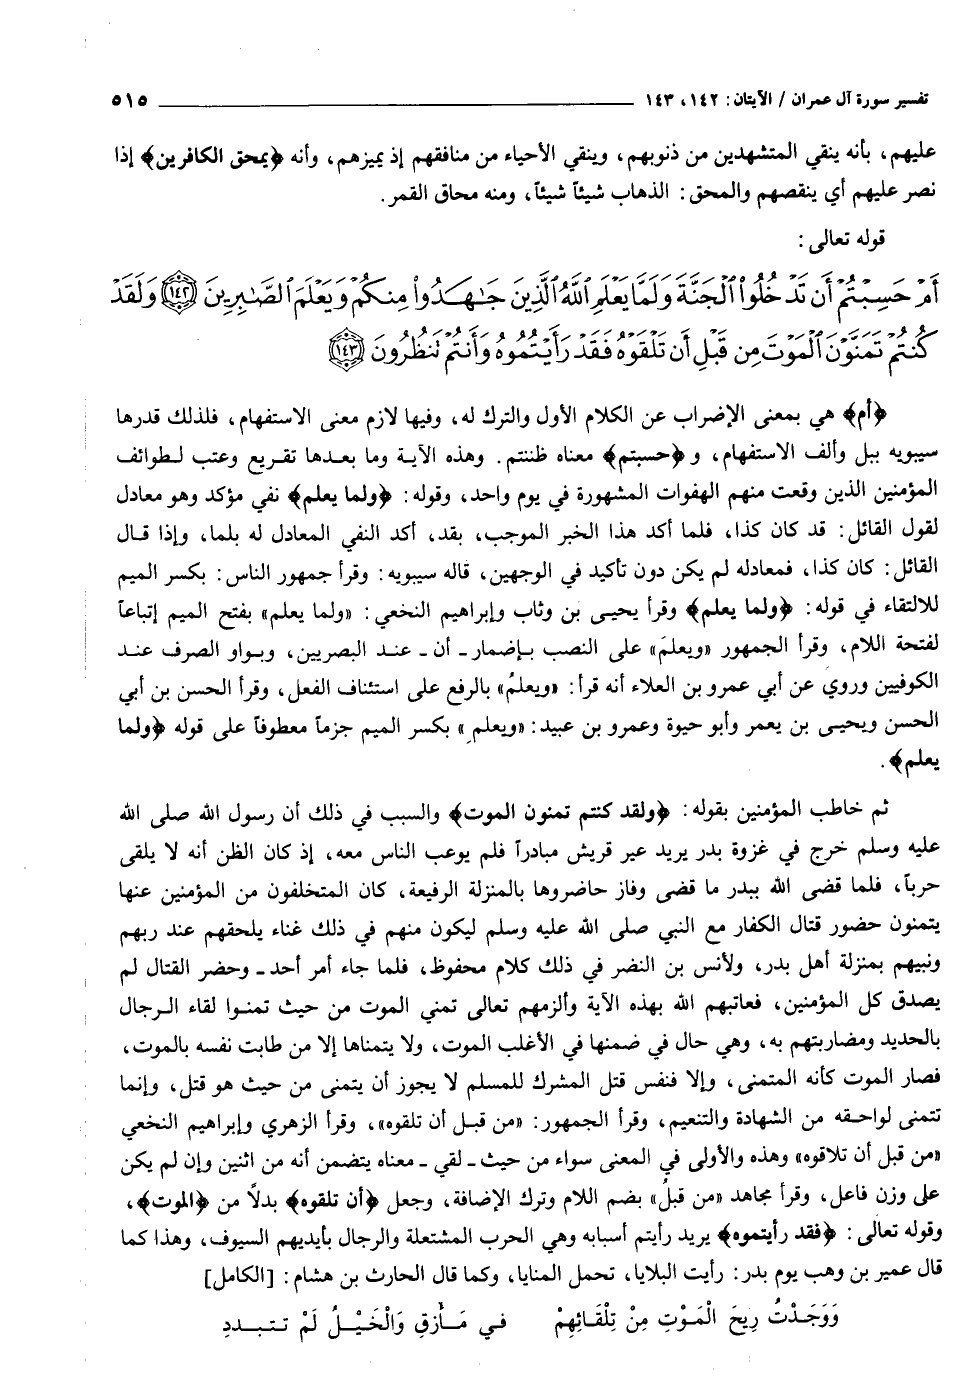 تفسير سورة آل عمران / الآيتان: ١٤٢، ١٤٣ ٥١٥
عليهم، بأنه ينقي المتشهدين من ذنوبهم، وينقي الأحياء من منافقهم إذ يميزهم، وأنه ﴿يمحق الكافرين﴾ إذا
نصر عليهم أي ينقصهم والمحق: الذهاب شيئاً شيئاً، ومنه محاق القمر.
قوله تعالى:
أَمْ حَسِبْتُمْ أَن تَدْخُلُوا۟ ٱلْجَنَّةَ وَلَمَّا يَعْلَمِ ٱللَّهُ ٱلَّذِينَ جَـٰهَدُوا۟ مِنكُمْ وَيَعْلَمَ ٱلصَّـٰبِرِينَ ﴿١٤٢﴾ وَلَقَدْ
كُنتُمْ تَمَنَّوْنَ ٱلْمَوْتَ مِن قَبْلِ أَن تَلْقَوْهُ فَقَدْ رَأَيْتُمُوهُ وَأَنتُمْ تَنظُرُونَ ﴿١٤٣﴾
﴿أم﴾ هي بمعنى الإضراب عن الكلام الأول والترك له، وفيها لازم معنى الاستفهام، فلذلك قدرها
سيبويه ببل وألف الاستفهام، و ﴿حسبتم﴾ معناه ظننتم. وهذه الآية وما بعدها تقريع وعتب لطوائف
المؤمنين الذين وقعت منهم الهفوات المشهورة في يوم واحد، وقوله: ﴿ولما يعلم﴾ نفي مؤكد وهو معادل
لقول القائل: قد كان كذا، فلما أكد هذا الخبر الموجب، بقد، أكد النفي المعادل له بلما، وإذا قال
القائل: كان كذا، فمعادله لم يكن دون تأكيد في الوجهين، قاله سيبويه: وقرأ جمهور الناس: بكسر الميم
للالتقاء في قوله: ﴿ولما يعلم﴾ وقرأ يحيى بن وثاب وإبراهيم النخعي: «ولما يعلم» بفتح الميم إتباعاً
لفتحة اللام، وقرأ الجمهور «ويعلمَ» على النصب بإضمار ـ أن ـ عند البصريين، وبواو الصرف عند
الكوفيين وروي عن أبي عمرو بن العلاء أنه قرأ: «ويعلمُ» بالرفع على استئناف الفعل، وقرأ الحسن بن أبي
الحسن ويحيى بن يعمر وأبو حيوة وعمرو بن عبيد: «ويعلمِ» بكسر الميم جزماً معطوفاً على قوله ﴿ولما
يعلم﴾.
ثم خاطب المؤمنين بقوله: ﴿ولقد كنتم تمنون الموت﴾ والسبب في ذلك أن رسول الله صلى الله
عليه وسلم خرج في غزوة بدر يريد عير قريش مبادراً فلم يوعب الناس معه، إذ كان الظن أنه لا يلقى
حرباً، فلما قضى الله ببدر ما قضى وفاز حاضروها بالمنزلة الرفيعة، كان المتخلفون من المؤمنين عنها
يتمنون حضور قتال الكفار مع النبي صلى الله عليه وسلم ليكون منهم في ذلك غناء يلحقهم عند ربهم
ونبيهم بمنزلة أهل بدر، ولأنس بن النضر في ذلك كلام محفوظ، فلما جاء أمر أحد ـ وحضر القتال لم
يصدق كل المؤمنين، فعاتبهم الله بهذه الآية وألزمهم تعالى تمني الموت من حيث تمنوا لقاء الرجال
بالحديد ومضاربتهم به، وهي حال في ضمنها في الأغلب الموت، ولا يتمناها إلا من طابت نفسه بالموت،
فصار الموت كأنه المتمنى، وإلا فنفس قتل المشرك للمسلم لا يجوز أن يتمنى من حيث هو قتل، وإنما
تتمنى لواحقه من الشهادة والتنعيم، وقرأ الجمهور: «من قبل أن تلقوه»، وقرأ الزهري وإبراهيم النخعي
«من قبل أن تلاقوه» وهذه والأولى في المعنى سواء من حيث ـ لقي ـ معناه يتضمن أنه من اثنين وإن لم يكن
على وزن فاعل، وقرأ مجاهد «من قبلُ» بضم اللام وترك الإضافة، وجعل ﴿أن تلقوه﴾ بدلاً من ﴿الموت﴾،
وقوله تعالى: ﴿فقد رأيتموه﴾ يريد رأيتم أسبابه وهي الحرب المشتعلة والرجال بأيديهم السيوف، وهذا كما
قال عمير بن وهب يوم بدر: رأيت البلايا، تحمل المنايا، وكما قال الحارث بن هشام: [الكامل]
وَوَجَدْتُ رِيحَ الْمَوْتِ مِنْ تِلْقَائِهِمْ في مَأْزَقٍ وَالْخَيْلُ لَمْ تتبددِ